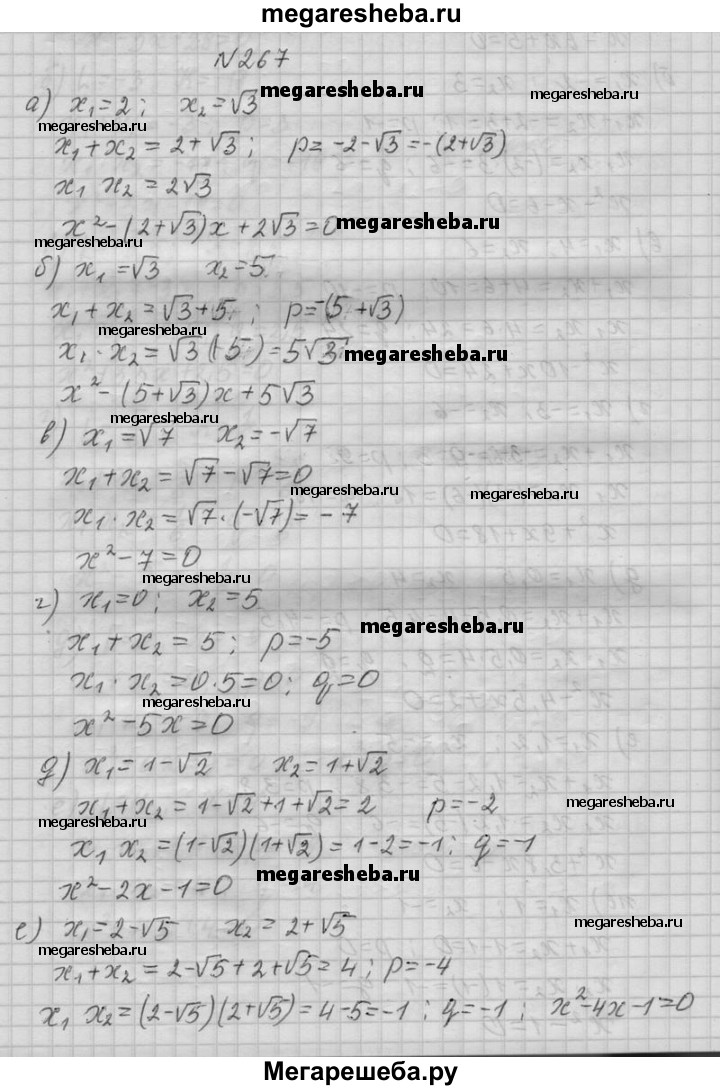 megaresheba.ru
N267
megaresheba.ru
а) x₁=2; x₂=√3
megaresheba.ru
megaresheba.ru
x₁+x₂=2+√3; p=-2-√3=-(2+√3)
x₁ x₂=2√3
x²-(2+√3)x+2√3=0
megaresheba.ru
megaresheba.ru
б) x₁=√3 x₂=5
x₁+x₂=√3+5; p=-(5+√3)
megaresheba.ru
x₁·x₂=√3(5)=5√3
megaresheba.ru
x²-(5+√3)x+5√3
megaresheba.ru
в) x₁=√7 x₂=-√7
x₁+x₂=√7-√7=0
megaresheba.ru
megaresheba.ru
x₁·x₂=√7·(-√7)=-7
x²-7=0
megaresheba.ru
г) x₁=0; x₂=5
megaresheba.ru
x₁+x₂=5; p=-5
x₁·x₂=0·5=0; q=0
megaresheba.ru
x²-5x=0
д) x₁=1-√2 x₂=1+√2
x₁+x₂=1-√2+1+√2=2 p=-2
megaresheba.ru
megaresheba.ru
x₁ x₂=(1-√2)(1+√2)=1-2=-1; q=-1
x²-2x-1=0
megaresheba.ru
е) x₁=2-√5 x₂=2+√5
megaresheba.ru
megaresheba.ru
x₁+x₂=2-√5+2+√5=4; p=-4
x₁ x₂=(2-√5)(2+√5)=4-5=-1; q=-1; x²-4x-1=0
Мегарешеба.ру